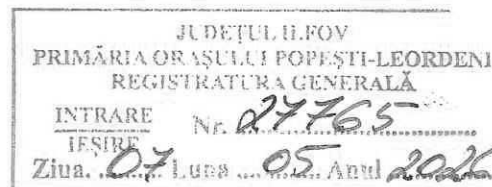 JUDEȚUL ILFOV
PRIMĂRIA ORAȘULUI POPEȘTI-LEORDENI
REGISTRATURA GENERALĂ
INTRARE
IEȘIRE
Nr. 27765
Ziua. 07 Luna 05 Anul